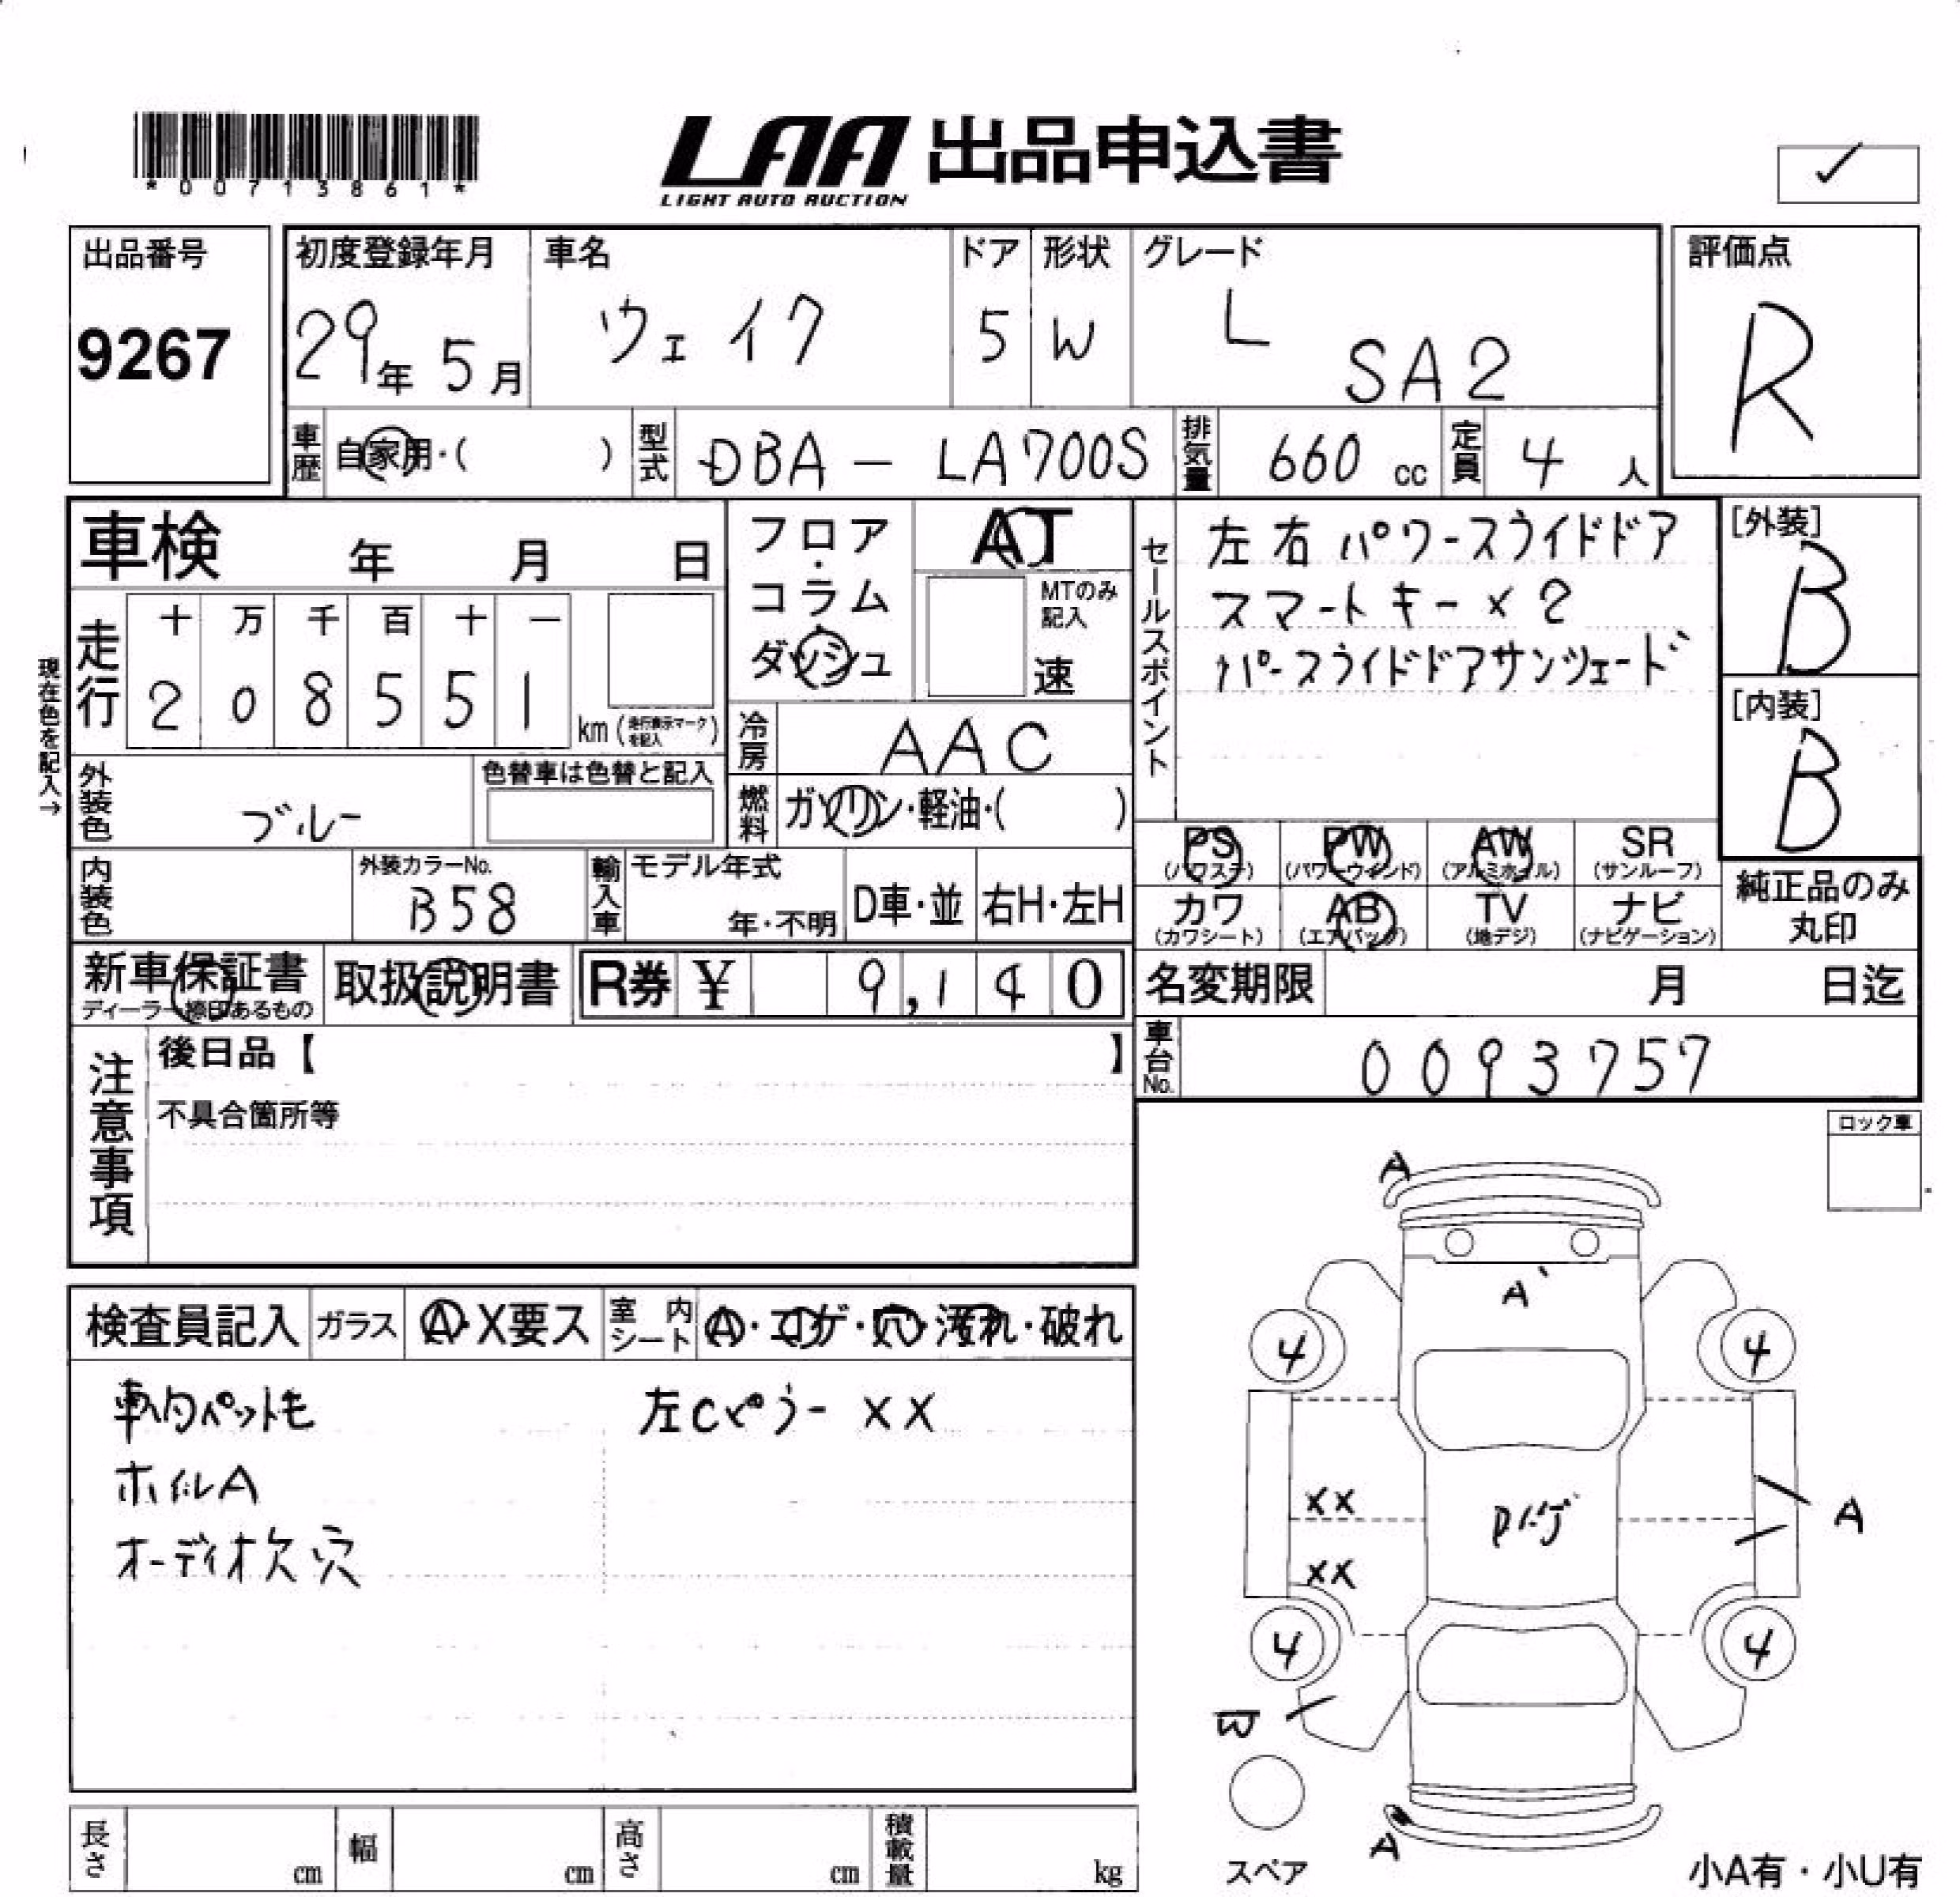 *00713861*
LAA 出品申込書
LIGHT AUTO AUCTION
出品番号
9267
初度登録年月
29年 5月
車名
ウェイク
ドア
5
形状
W
グレード
L SA2
評価点
R
車歴 自家用・( )
型式 DBA - LA700S
排気量 660 cc
定員 4 人
車検 年 月 日
フロア・コラム・ダッシュ
AT
MTのみ記入
速
セールスポイント
左右パワースライドドア
スマートキー×2
パースライドドアサンシェード
[外装]
B
[内装]
B
現在色を記入→
走行
十 万 千 百 十 一
2 0 8 5 5 1
km (走行表示マークを記入)
冷房 AAC
外装色 ブルー
色替車は色替と記入
燃料 ガソリン・軽油・( )
PS (パワステ)
PW (パワーウィンド)
AW (アルミホイル)
SR (サンルーフ)
カワ (カワシート)
AB (エアバッグ)
TV (地デジ)
ナビ (ナビゲーション)
純正品のみ丸印
内装色
外装カラーNo.
B58
輸入車
モデル年式
年・不明
D車・並
右H・左H
新車保証書
ディーラー捺印あるもの
取扱説明書
R券 ¥ 9,140
名変期限 月 日迄
車台No. 0093757
注意事項
後日品【 】
不具合箇所等
ロック車
検査員記入
ガラス A・X要ス
室内シート A・コゲ・穴・汚れ・破れ
車内ペット毛
左Cピラー XX
ホイルA
オーディオ欠 穴
A
A'
4
4
XX
XX
A
4
4
W
A
スペア
小A有・小U有
長さ cm
幅 cm
高さ cm
積載量 kg